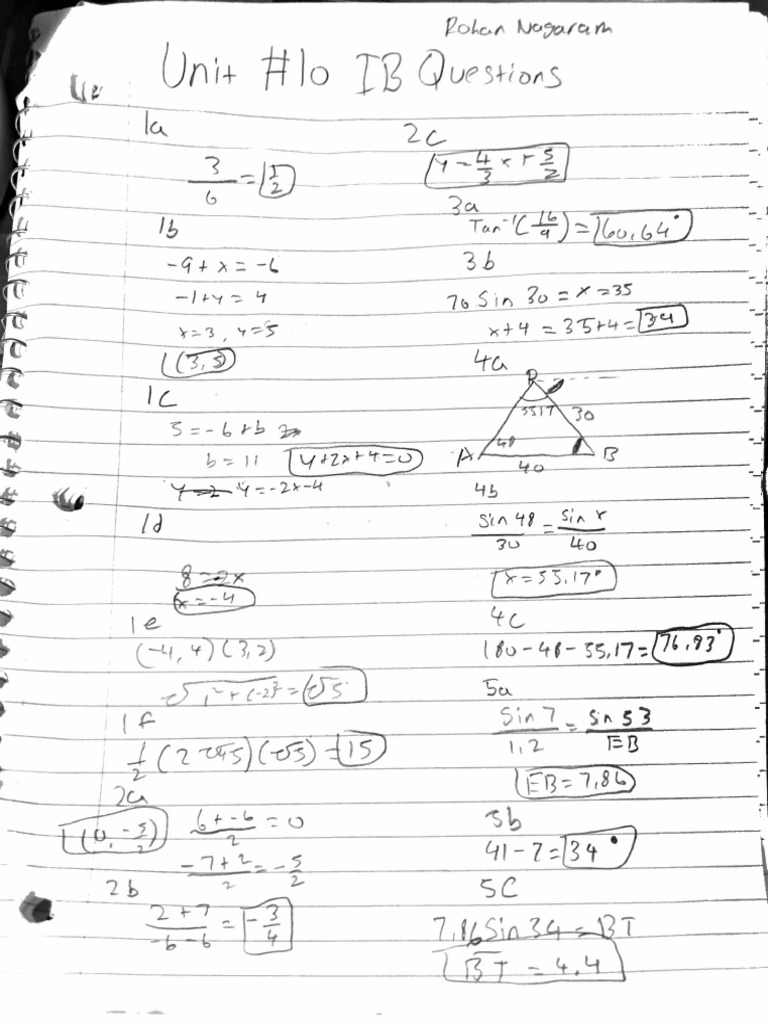 Rohan Nagaram
Unit #10 IB Questions
1a
3/6 = 1/2
1b
-9 + x = -6
-1 + y = 4
x = 3, y = 5
(3, 5)
1c
5 = -6 + b
b = 11 y + 2x + 4 = 0
y = -2x - 4
1d
8 = -2x
x = -4
1e
(-4, 4) (3, 2)
√1² + (-2)² = √5
1f
1/2 (2√45)(√5) = 15
2a
(0, -5/2) 6 + -6/2 = 0
-7 + 2/2 = -5/2
2b
2 + 7/-6 - 6 = -3/4
2c
y = 4/3 x + 5/2
3a
Tan⁻¹(16/9) = 60.64°
3b
70 Sin 30 = x = 35
x + 4 = 35 + 4 = 39
4a
55.17 30
A 48 B
40
4b
Sin 48/30 = Sin x/40
x = 55.17°
4c
180 - 48 - 55.17 = 76.83°
5a
Sin 7/1.2 = Sin 53/EB
EB = 7.86
5b
41 - 7 = 34°
5C
7.86 Sin 34 = BT
BT = 4.4